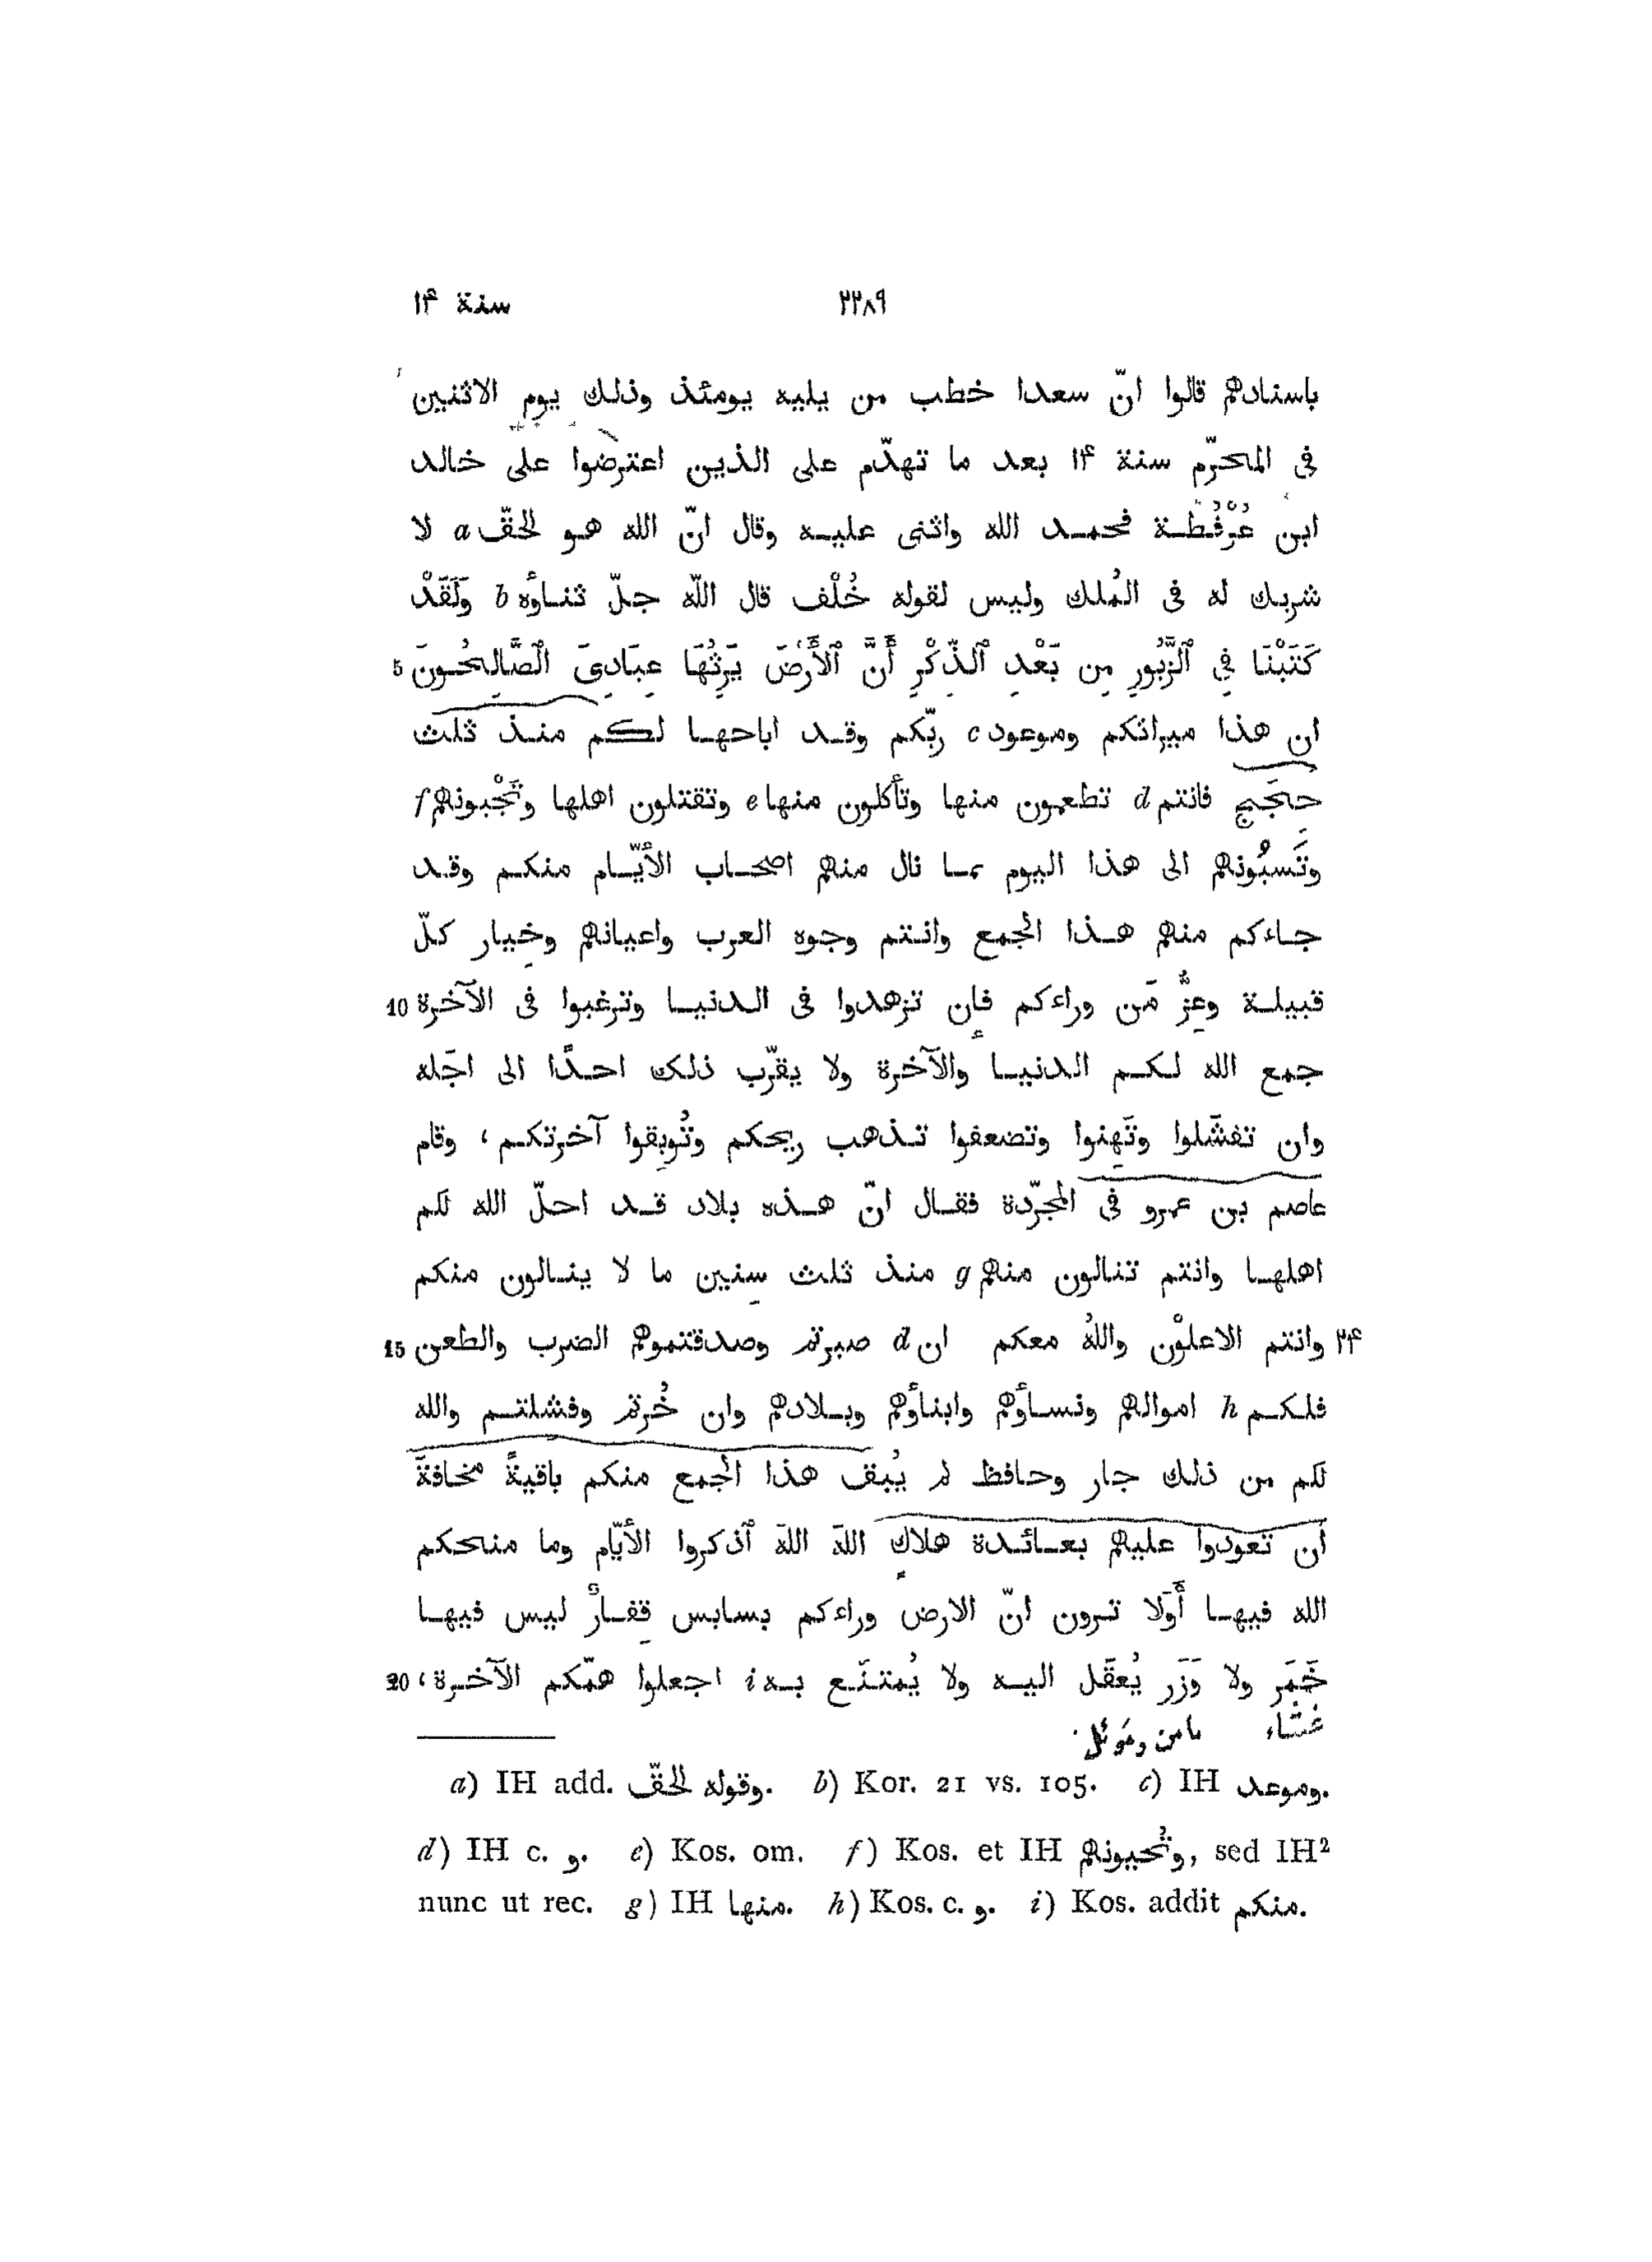 سنة ۱۴ ۲۲۸۹
باسنادهم قالوا انّ سعدا خطب من يليه يومئذ وذلك يوم الاثنين
فى المحرّم سنة ۱۴ بعد ما تهدّم على الذين اعترضوا على خالد
ابن عُرْفُطة فحمد الله واثنى عليه وقال انّ الله هو الحقّ a لا
شريك له فى المُلك وليس لقوله خُلْف قال اللّه جلّ ثناؤه b وَلَقَدْ
كَتَبْنَا فِى ٱلزَّبُورِ مِن بَعْدِ ٱلذِّكْرِ أَنَّ ٱلْأَرْضَ يَرِثُهَا عِبَادِىَ ٱلصَّالِحُونَ 5
ان هذا ميراثكم وموعود c ربّكم وقد اباحها لكم منذ ثلث
حجج فانتم d تطعمون منها وتأكلون منها e وتقتلون اهلها وتَجْبونهم f
وتَسبُونهم الى هذا اليوم بما نال منهم اصحاب الأيّام منكم وقد
جاءكم منهم هذا الجمع وانتم وجوه العرب واعيانهم وخِيار كلّ
قبيلة وعِزُّ مَن وراءكم فإن تزهدوا فى الدنيا وترغبوا فى الآخرة 10
جمع الله لكم الدنيا والآخرة ولا يقرّب ذلك احدًا الى اجَله
وان تفشَلوا وتَهِنوا وتضعفوا تذهب ريحكم وتُوبِقوا آخرتكم، وقام
عاصم بن عمرو فى المجرّدة فقال انّ هذه بلاد قد احلّ الله لكم
اهلها وانتم تنالون منهم g منذ ثلث سِنين ما لا ينالون منكم
۲۴ وانتم الاعلوْن واللهُ معكم ان d صبرتم وصدقتموهم الضرب والطعن 15
فلكم h اموالهم ونساؤهم وابناؤهم وبلادهم وان خُرتم وفشلتم والله
لكم من ذلك جار وحافظ لم يُبق هذا الجمع منكم باقيةً مخافةَ
أن تعودوا عليهم بعائدة هلاكٍ اللهَ اللهَ ٱذكروا الأيّام وما منحكم
الله فيها أَوَلا ترون انّ الارض وراءكم بسابس قِفارٌ ليس فيها
خَمَر ولا وَزَر يُعقَل اليه ولا يُمتنَع به i اجعلوا همّكم الآخرة، 20
غُثَاء مامن ومَوئل
a) IH add. وقوله الحقّ. b) Kor. 21 vs. 105. c) IH وموعد.
d) IH c. و. e) Kos. om. f) Kos. et IH وتُحيونهم, sed IH²
nunc ut rec. g) IH منها. h) Kos. c. و. i) Kos. addit منكم.